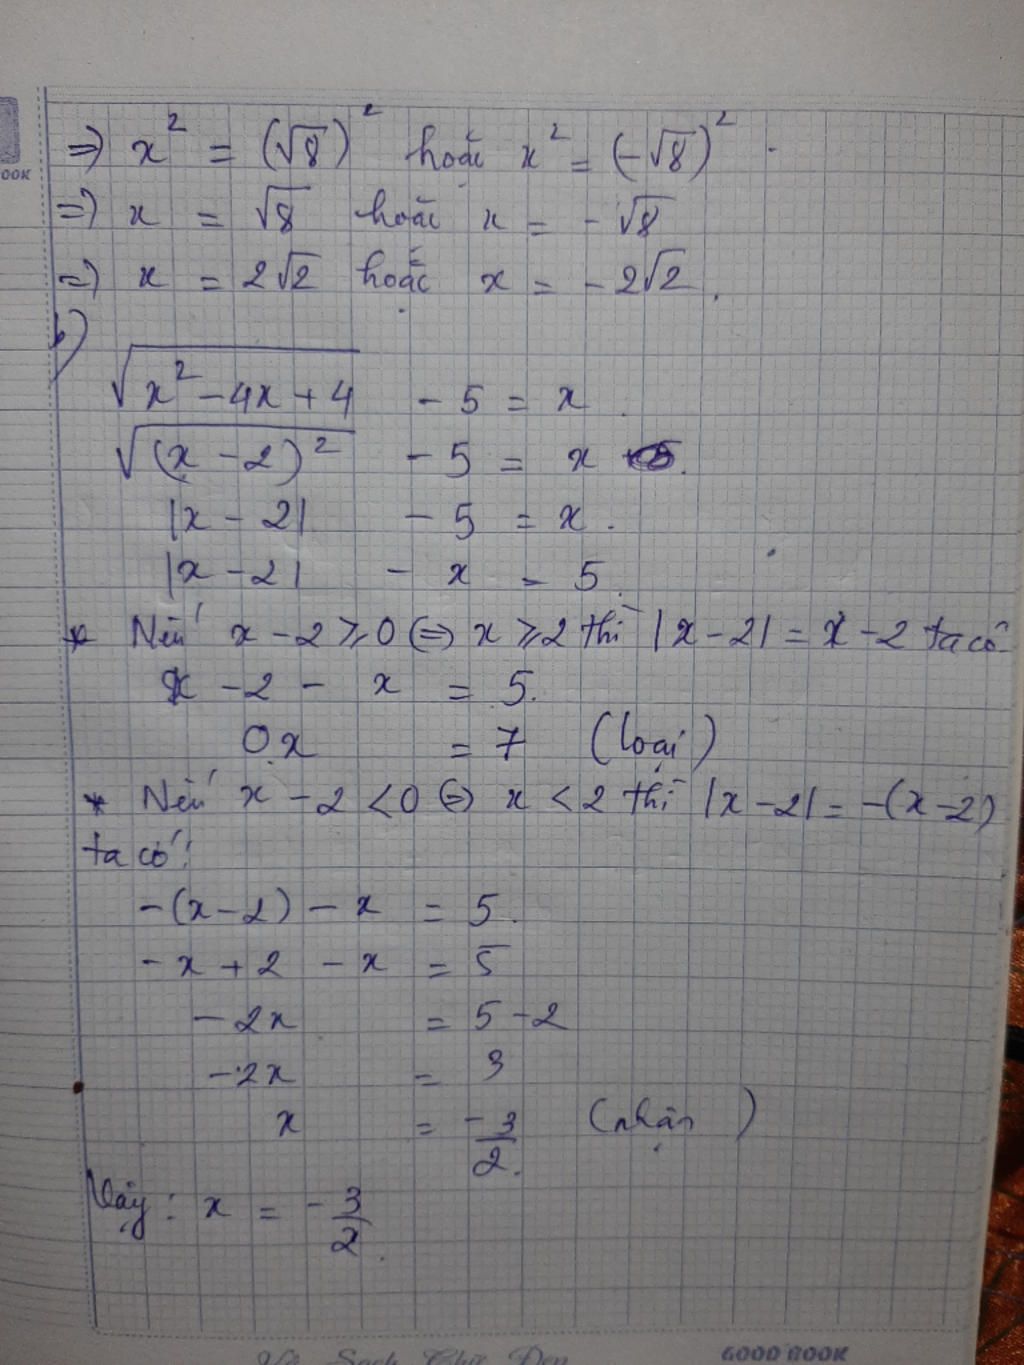 OOK
⇒) x² = (√8)² hoặc x² = (-√8)²
⇒) x = √8 hoặc x = -√8
⇒) x = 2√2 hoặc x = -2√2.
b)
√(x² - 4x + 4) - 5 = x.
√((x - 2)²) - 5 = x
|x - 2| - 5 = x.
|x - 2| - x = 5.
* Nếu x - 2 ≥ 0 (=) x ≥ 2 thì |x - 2| = x - 2 ta có
x - 2 - x = 5.
0x = 7 (loại)
* Nếu x - 2 < 0 (=) x < 2 thì |x - 2| = -(x - 2)
ta có:
-(x - 2) - x = 5.
-x + 2 - x = 5
-2x = 5 - 2
-2x = 3
x = -3/2. (nhận)
Vậy: x = -3/2.
Vở Sạch Chữ Đẹp GOOD BOOK